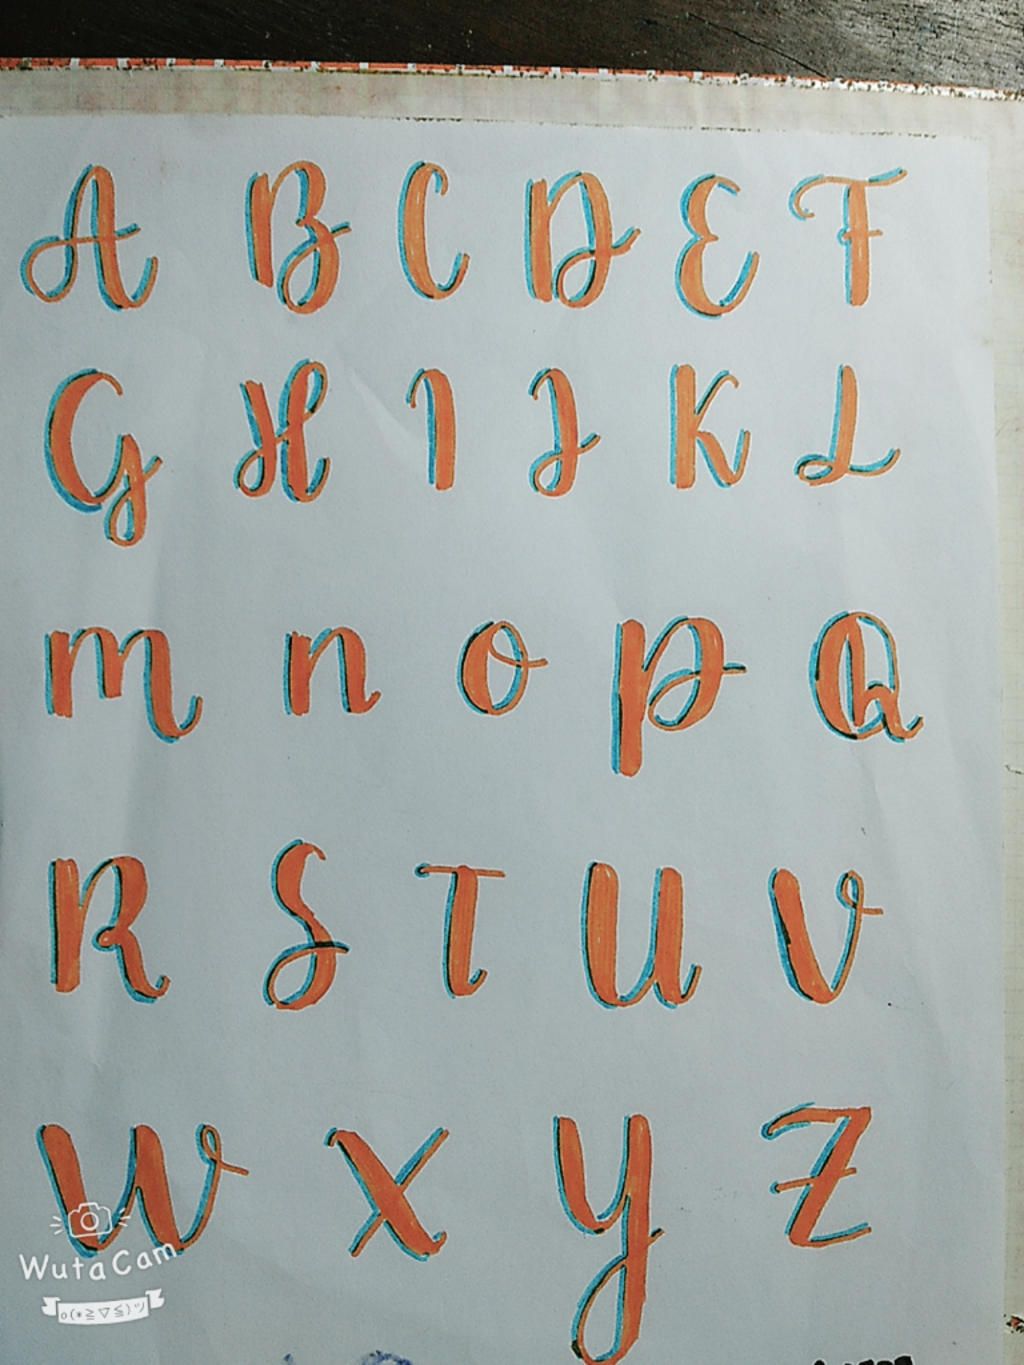 A B C D E F
G H I J K L
m n o p Q
R S T U V
W X Y Z
WutaCam
o(*≧▽≦)ツ